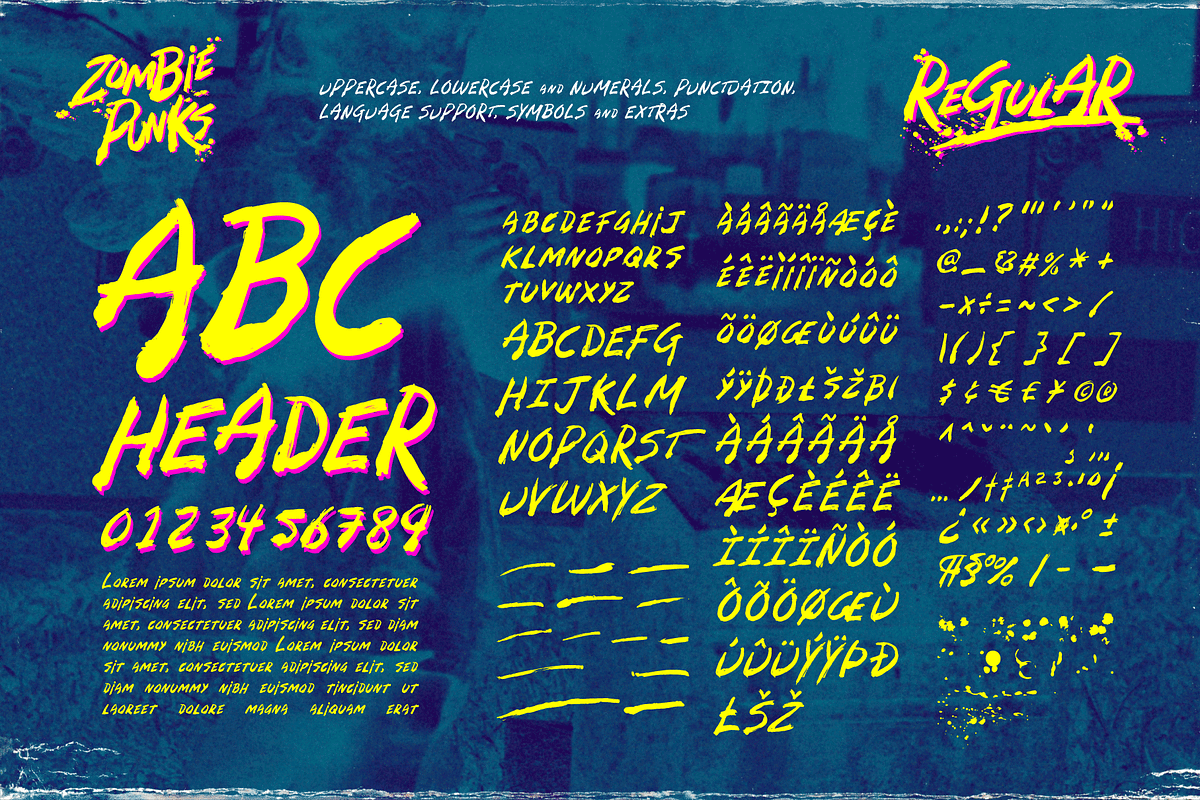 ZOMBIE
PUNKS
UPPERCASE, LOWERCASE AND NUMERALS, PUNCTUATION,
LANGUAGE SUPPORT, SYMBOLS AND EXTRAS
REGULAR
ABC
HEADER
0123456789
LOREM IPSUM DOLOR SIT AMET, CONSECTETUER
ADIPISCING ELIT, SED LOREM IPSUM DOLOR SIT
AMET, CONSECTETUER ADIPISCING ELIT, SED DIAM
NONUMMY NIBH EUISMOD LOREM IPSUM DOLOR
SIT AMET, CONSECTETUER ADIPISCING ELIT, SED
DIAM NONUMMY NIBH EUISMOD TINCIDUNT UT
LAOREET DOLORE MAGNA ALIQUAM ERAT
ABCDEFGHIJ
KLMNOPQRS
TUVWXYZ
ABCDEFG
HIJKLM
NOPQRST
UVWXYZ
ÀÁÂÃÄÅÆÇÈ
ÉÊËÌÍÎÏÑÒÓÔ
ÕÖØŒÙÚÛÜ
ÝŸÞÐŁŠŽBI
ÀÁÂÃÄÅ
ÆÇÈÉÊË
ÌÍÎÏÑÒÓ
ÔÕÖØŒÙ
ÚÛÜÝŸÞÐ
ŁŠŽ
.,:;!?"''""
@_&#%*+
-×÷=~<>/
\|(){}[]
$¢€£¥©®
^ˆ˘¨~`´
…/†‡ª²³·¹º¡
¿«»‹›¤•°±
¶§‰/-–